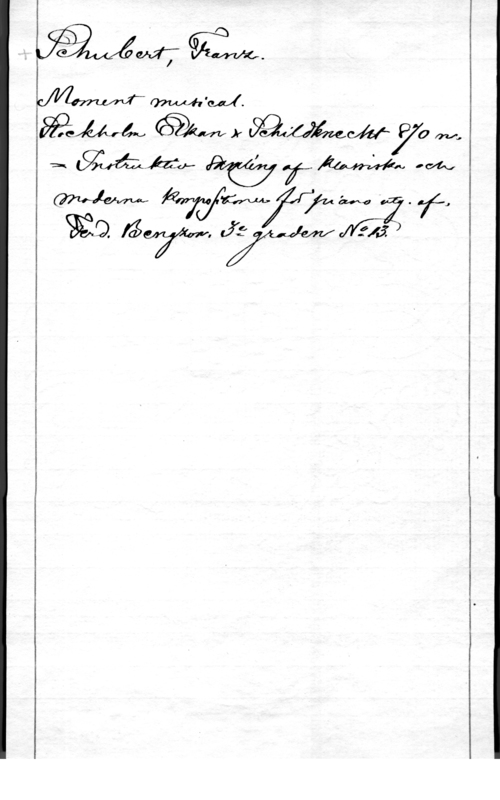 Schubert, Franz.
Moment musical.
Stockholm Elkan & Schildknecht 870 n.
= Instruktiv Samling af klassiska och
moderna kompositioner för piano utg. af,
Ferd. Bengzon. 3e graden No 13.